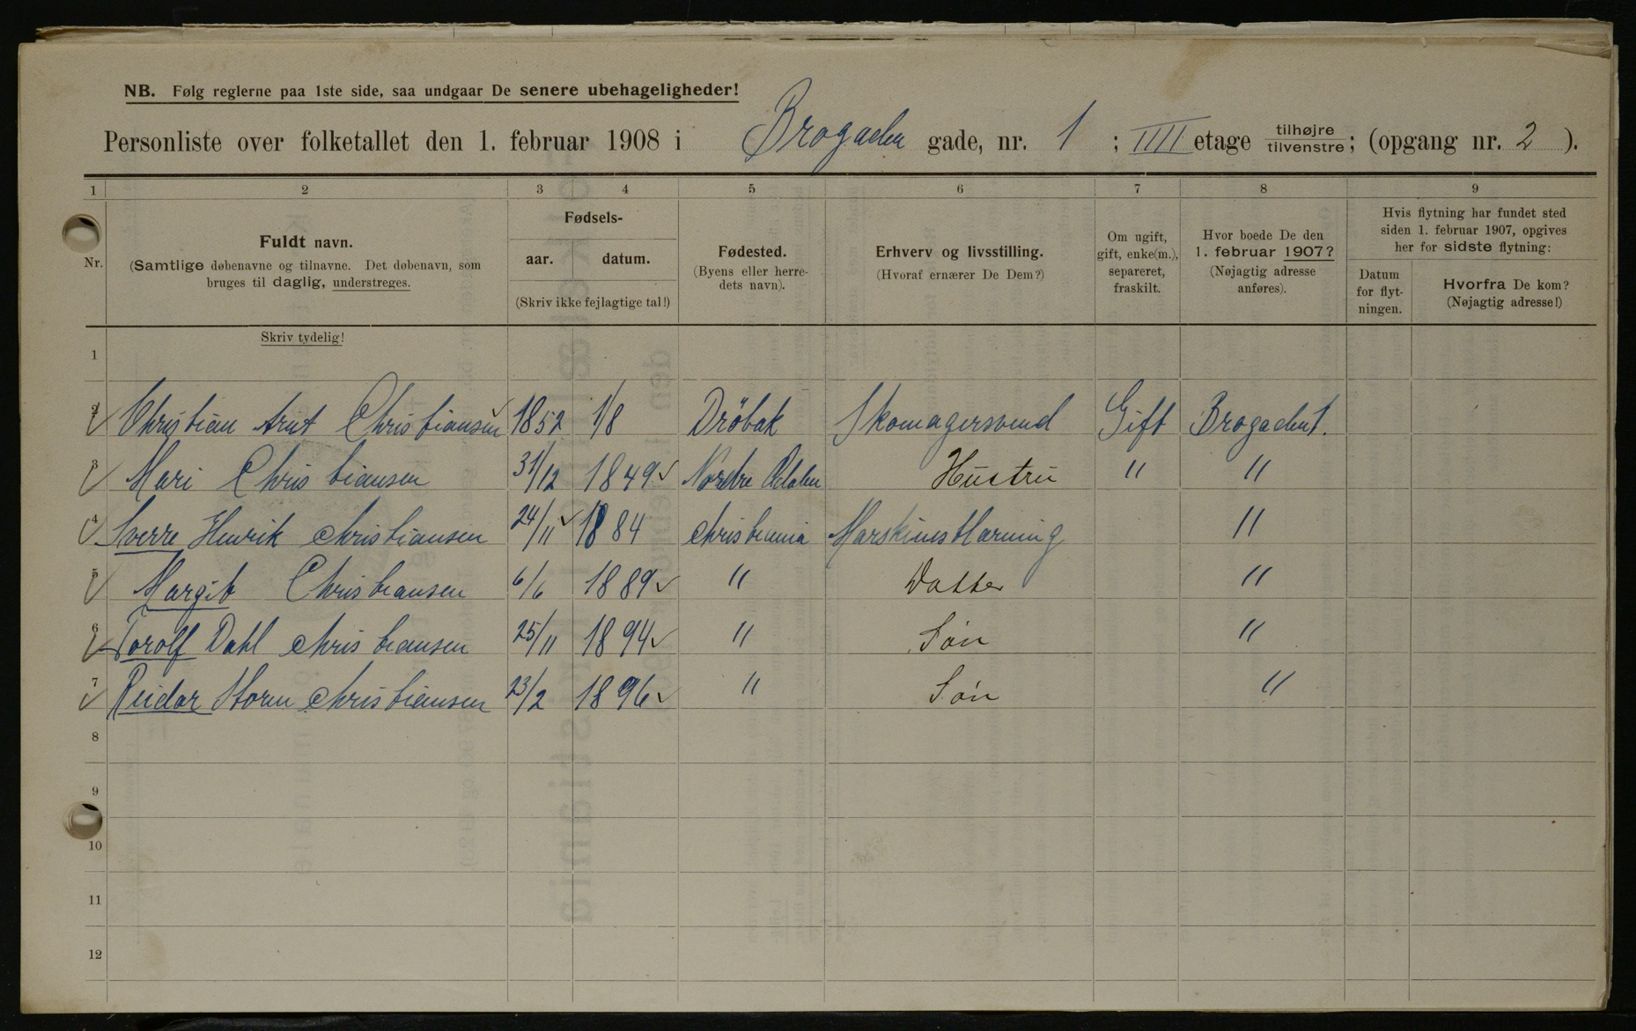 NB. Følg reglerne paa 1ste side, saa undgaar De senere ubehageligheder!
Personliste over folketallet den 1. februar 1908 i Brogaden gade, nr. 1 ; IIII etage tilhøjre tilvenstre ; (opgang nr. 2 ).
1 2 3 4 5 6 7 8 9
Nr.
Fuldt navn.
(Samtlige døbenavne og tilnavne. Det døbenavn, som
bruges til daglig, understreges.
Fødsels-
aar. datum.
(Skriv ikke fejlagtige tal!)
Fødested.
(Byens eller herre-
dets navn).
Erhverv og livsstilling.
(Hvoraf ernærer De Dem?)
Om ugift,
gift, enke(m.),
separeret,
fraskilt.
Hvor boede De den
1. februar 1907?
(Nøjagtig adresse
anføres).
Hvis flytning har fundet sted
siden 1. februar 1907, opgives
her for sidste flytning:
Datum
for flyt-
ningen.
Hvorfra De kom?
(Nøjagtig adresse!)
Skriv tydelig!
1
2 Christian Arnt Christiansen 1852 1/8 Drøbak Skomagersvend Gift
3 Mari Christiansen 31/12 1849 Nordre Hustru " "
4 Sverre Henrik Christiansen 24/11 1884 Christiania "
5 Margit Christiansen 6/6 1889 " Datter "
6 Torolf Dahl Christiansen 25/11 1894 " Søn "
7 Reidar Storm Christiansen 23/2 1896 " Søn "
8
9
10
11
12